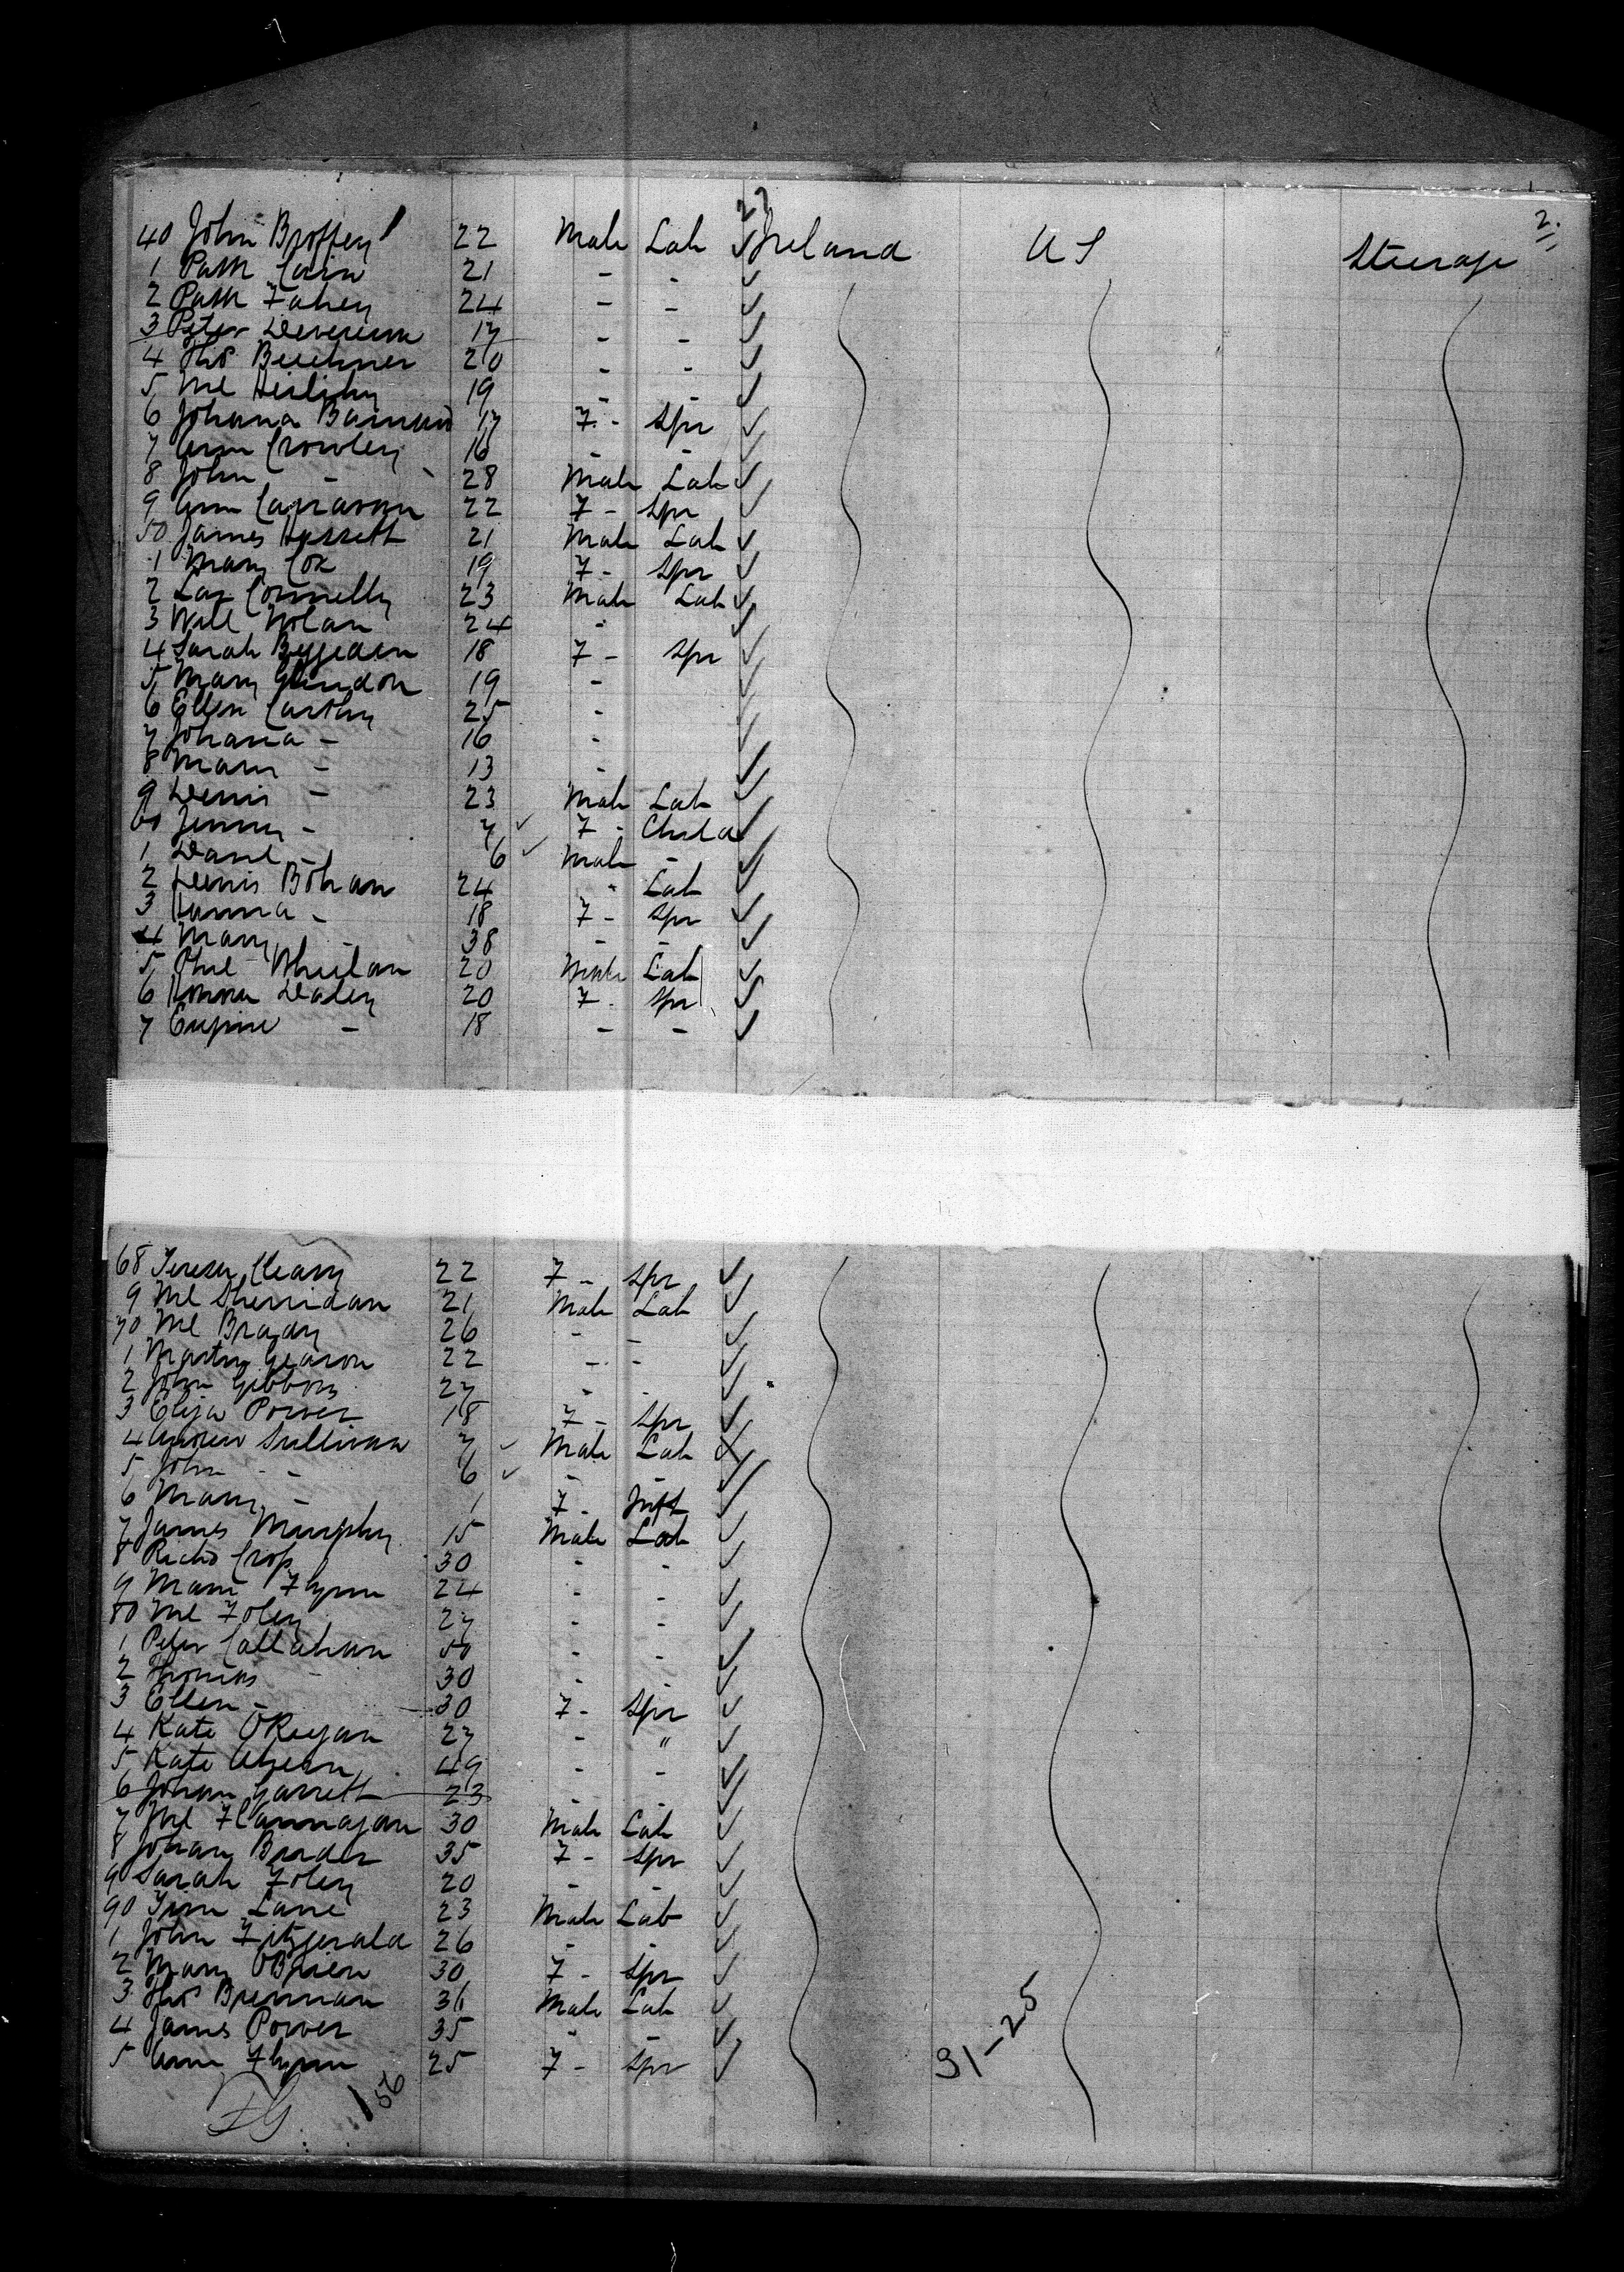 27 2.
40 John Broffey 22 Male Lab Ireland US Steerage
1 Patk Cain 21 - -
2 Patk Fahey 24 - -
3 Peter 17 - -
4 Thos 20 - -
5 Ml 19 - -
6 Johana 17 F - Spr
7 Ann Crowley 16 - -
8 John - 28 Male Lab
9 Ann 22 F - Spr
50 James 21 Male Lab
1 Mary Cox 19 F - Spr
2 Connelly 23 Male Lab
3 Will Nolan 24 -
4 Sarah 18 F - Spr
5 Mary Glendon 19 -
6 Ellen Carthy 25 -
7 Johana - 16 -
8 Mary - 13 -
9 Denis - 23 Male Lab
60 - 7 F - Child
1 Danl - 6 Male -
2 Denis Bohan 24 " Lab
3 Hanna - 18 F - Spr
4 Mary - 38 - -
5 Whelan 20 Male Lab
6 Daley 20 F - Spr
7 - 18 - -
68 Teresa Cleary 22 F - Spr
9 Ml Sherridan 21 Male Lab
70 Ml Brady 26 - -
1 Martin Gearon 22 - -
2 John Gibbons 27 - -
3 Eliza Power 18 F - Spr
4 Andrew Sullivan 7 Male Lab
5 John - 6 - -
6 Mary - 1 F - Inft
7 James Murphy 15 Male Lab
8 Richd 30 - -
9 Flynn 24 - -
80 Ml Foley 27 - -
1 Peter Callahan 50 - -
2 Thomas - 30 - -
3 Ellen - 30 F - Spr
4 Kate O'Regan 27 - "
5 Kate Ahern 49 - -
6 Johan Garrett 23 - -
7 Ml Flannagan 30 Male Lab
8 35 F - Spr
9 Sarah Foley 20 - -
90 Tim Lane 23 Male Lab
1 John Fitzgerald 26 - -
2 Mary O'Brien 30 F - Spr
3 Thos Brennan 36 Male Lab
4 James Power 35 - -
5 Ann Flynn 25 F - Spr
56 31-25